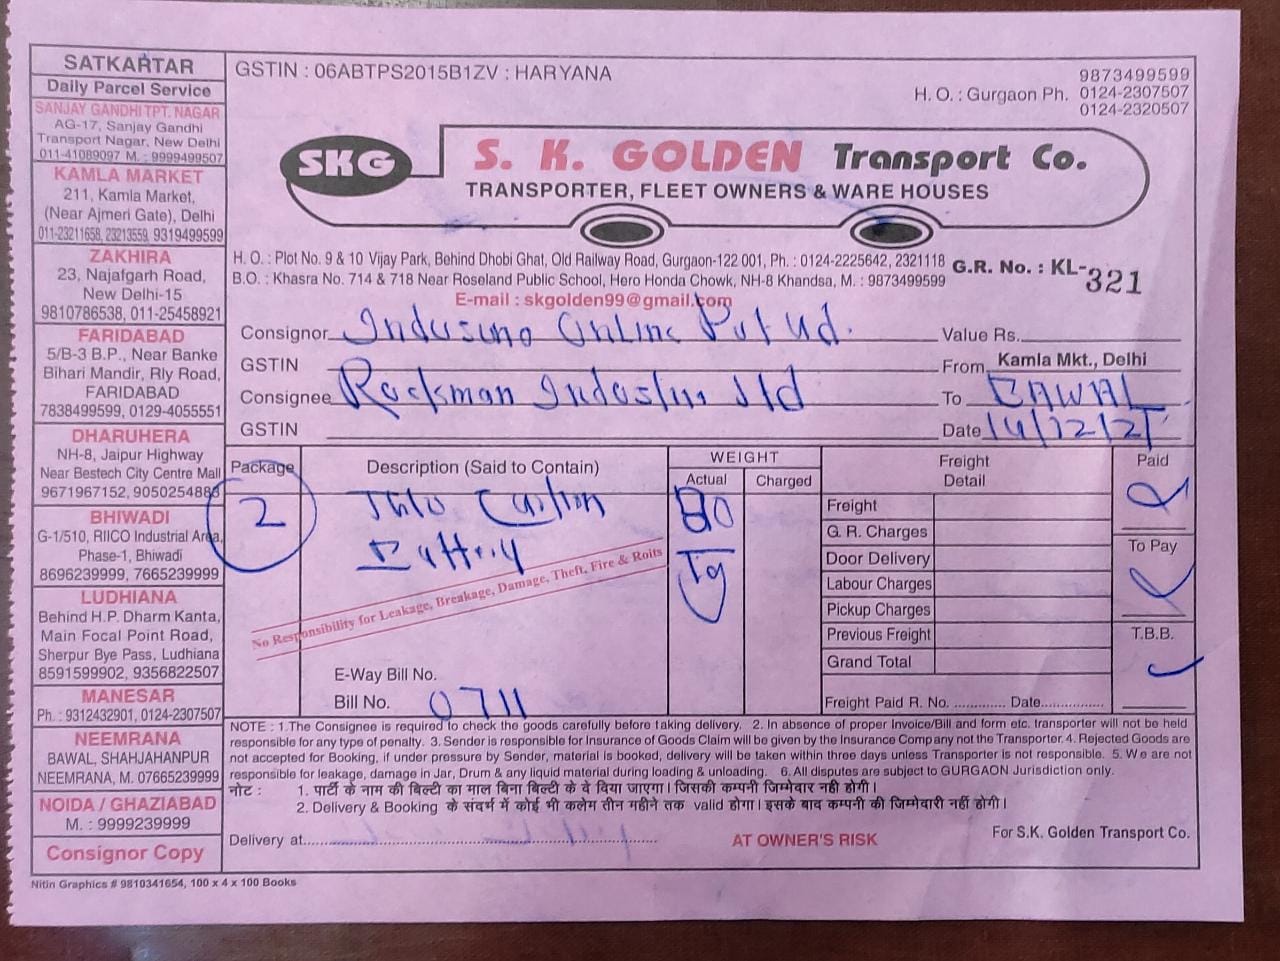 SATKARTAR
Daily Parcel Service
SANJAY GANDHI TPT. NAGAR
AG-17, Sanjay Gandhi
Transport Nagar, New Delhi
011-41089097 M. : 9999499507
KAMLA MARKET
211, Kamla Market,
(Near Ajmeri Gate), Delhi
011-23211658, 23213559, 9319499599
ZAKHIRA
23, Najafgarh Road,
New Delhi-15
9810786538, 011-25458921
FARIDABAD
5/B-3 B.P., Near Banke
Bihari Mandir, Rly Road,
FARIDABAD
7838499599, 0129-4055551
DHARUHERA
NH-8, Jaipur Highway
Near Bestech City Centre Mall
9671967152, 9050254883
BHIWADI
G-1/510, RIICO Industrial Area,
Phase-1, Bhiwadi
8696239999, 7665239999
LUDHIANA
Behind H.P. Dharm Kanta,
Main Focal Point Road,
Sherpur Bye Pass, Ludhiana
8591599902, 9356822507
MANESAR
Ph. : 9312432901, 0124-2307507
NEEMRANA
BAWAL, SHAHJAHANPUR
NEEMRANA, M. 07665239999
NOIDA / GHAZIABAD
M. : 9999239999
Consignor Copy
GSTIN : 06ABTPS2015B1ZV : HARYANA
9873499599
H. O. : Gurgaon Ph. 0124-2307507
0124-2320507
SKG
S. K. GOLDEN Transport Co.
TRANSPORTER, FLEET OWNERS & WARE HOUSES
H. O. : Plot No. 9 & 10 Vijay Park, Behind Dhobi Ghat, Old Railway Road, Gurgaon-122 001, Ph. : 0124-2225642, 2321118
B.O. : Khasra No. 714 & 718 Near Roseland Public School, Hero Honda Chowk, NH-8 Khandsa, M. : 9873499599
G.R. No. : KL-321
E-mail : skgolden99@gmail.com
Consignor Online
Value Rs.
GSTIN
From Kamla Mkt., Delhi
Consignee Rockman
To BAWAL
GSTIN
Date 14/12/21
Package Description (Said to Contain) WEIGHT Freight Detail Paid
Actual Charged
2
80
Freight
G. R. Charges
Door Delivery
Labour Charges
Pickup Charges
Previous Freight
Grand Total
To Pay
T.B.B.
No Responsibility for Leakage, Breakage, Damage, Theft, Fire & Roits
E-Way Bill No.
Bill No. 0711
Freight Paid R. No. ............. Date................
NOTE : 1.The Consignee is required to check the goods carefully before taking delivery. 2. In absence of proper Invoice/Bill and form etc. transporter will not be held
responsible for any type of penalty. 3. Sender is responsible for Insurance of Goods Claim will be given by the Insurance Company not the Transporter. 4. Rejected Goods are
not accepted for Booking, if under pressure by Sender, material is booked, delivery will be taken within three days unless Transporter is not responsible. 5. We are not
responsible for leakage, damage in Jar, Drum & any liquid material during loading & unloading. 6. All disputes are subject to GURGAON Jurisdiction only.
नोट : 1. पार्टी के नाम की बिल्टी का माल बिना बिल्टी के दे दिया जाएगा। जिसकी कम्पनी जिम्मेदार नही होगी।
2. Delivery & Booking के संदर्भ में कोई भी कलेम तीन महीने तक valid होगा। इसके बाद कम्पनी की जिम्मेदारी नहीं होगी।
Delivery at
AT OWNER'S RISK
For S.K. Golden Transport Co.
Nitin Graphics # 9810341654, 100 x 4 x 100 Books